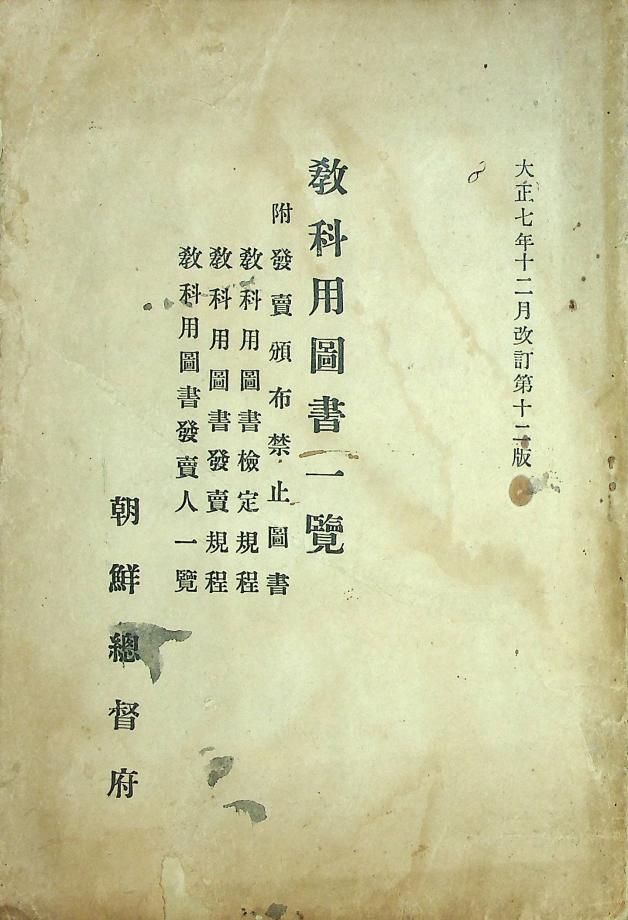 大正七年十二月改訂第十二版
敎科用圖書一覽
附 發賣頒布禁止圖書
敎科用圖書檢定規程
敎科用圖書發賣規程
敎科用圖書發賣人一覽
朝鮮總督府